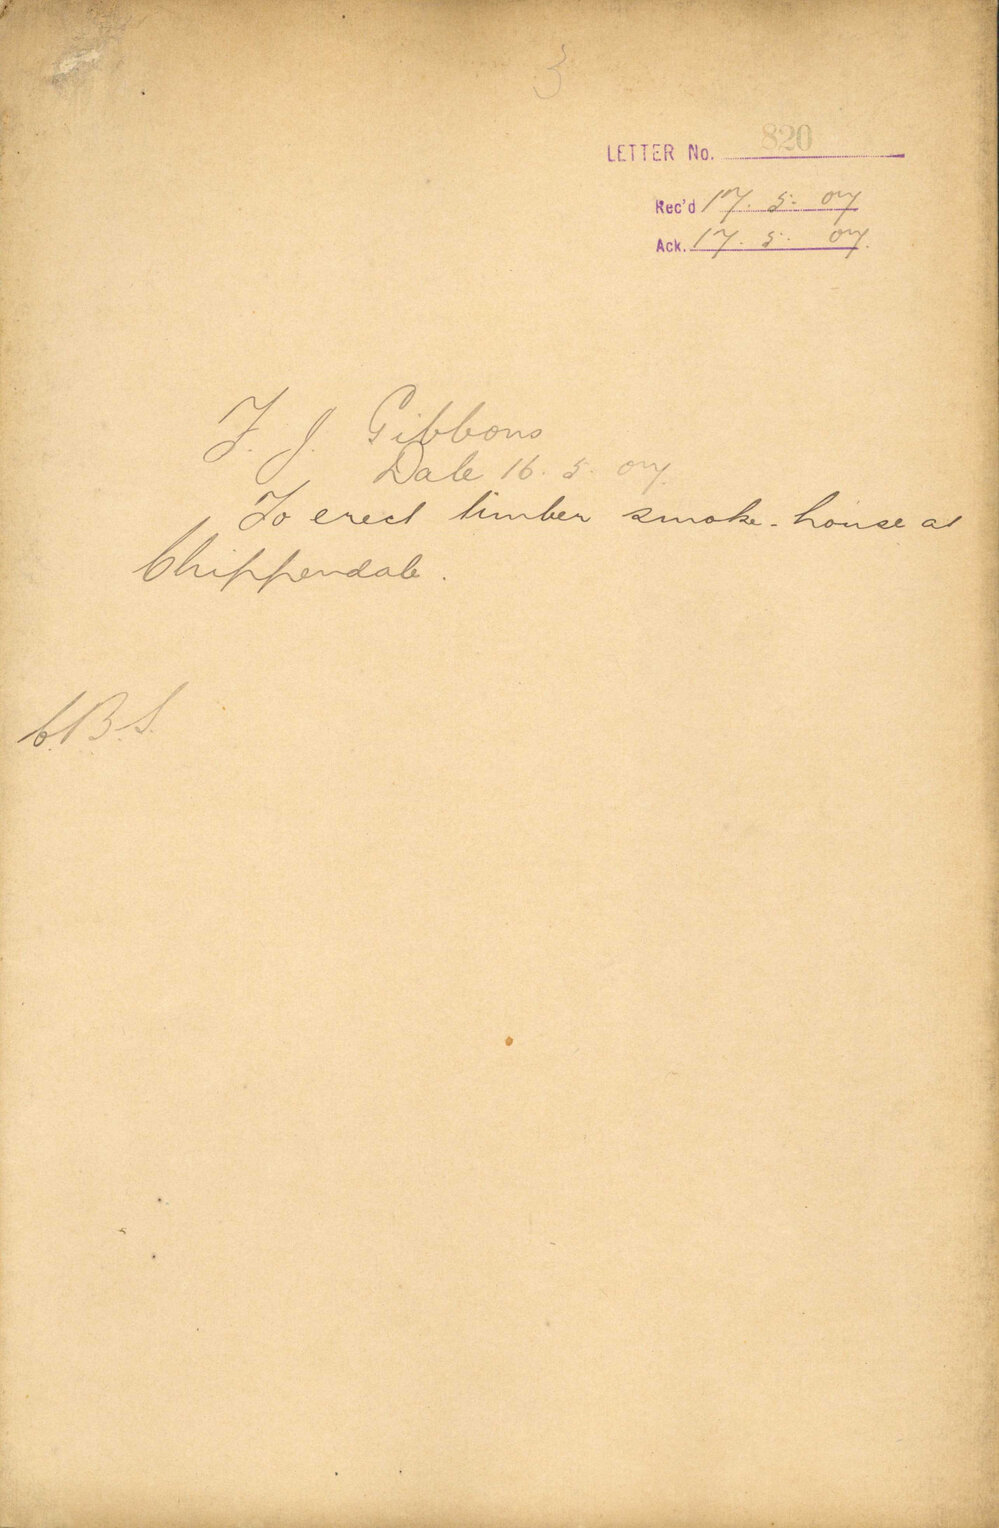 3
LETTER No. 820
Rec'd 17. 5. 07
Ack. 17. 5. 07.
F. J. Gibbons
Date 16. 5. 07.
To erect timber smoke-house at
Chippendale.
C.B.S.